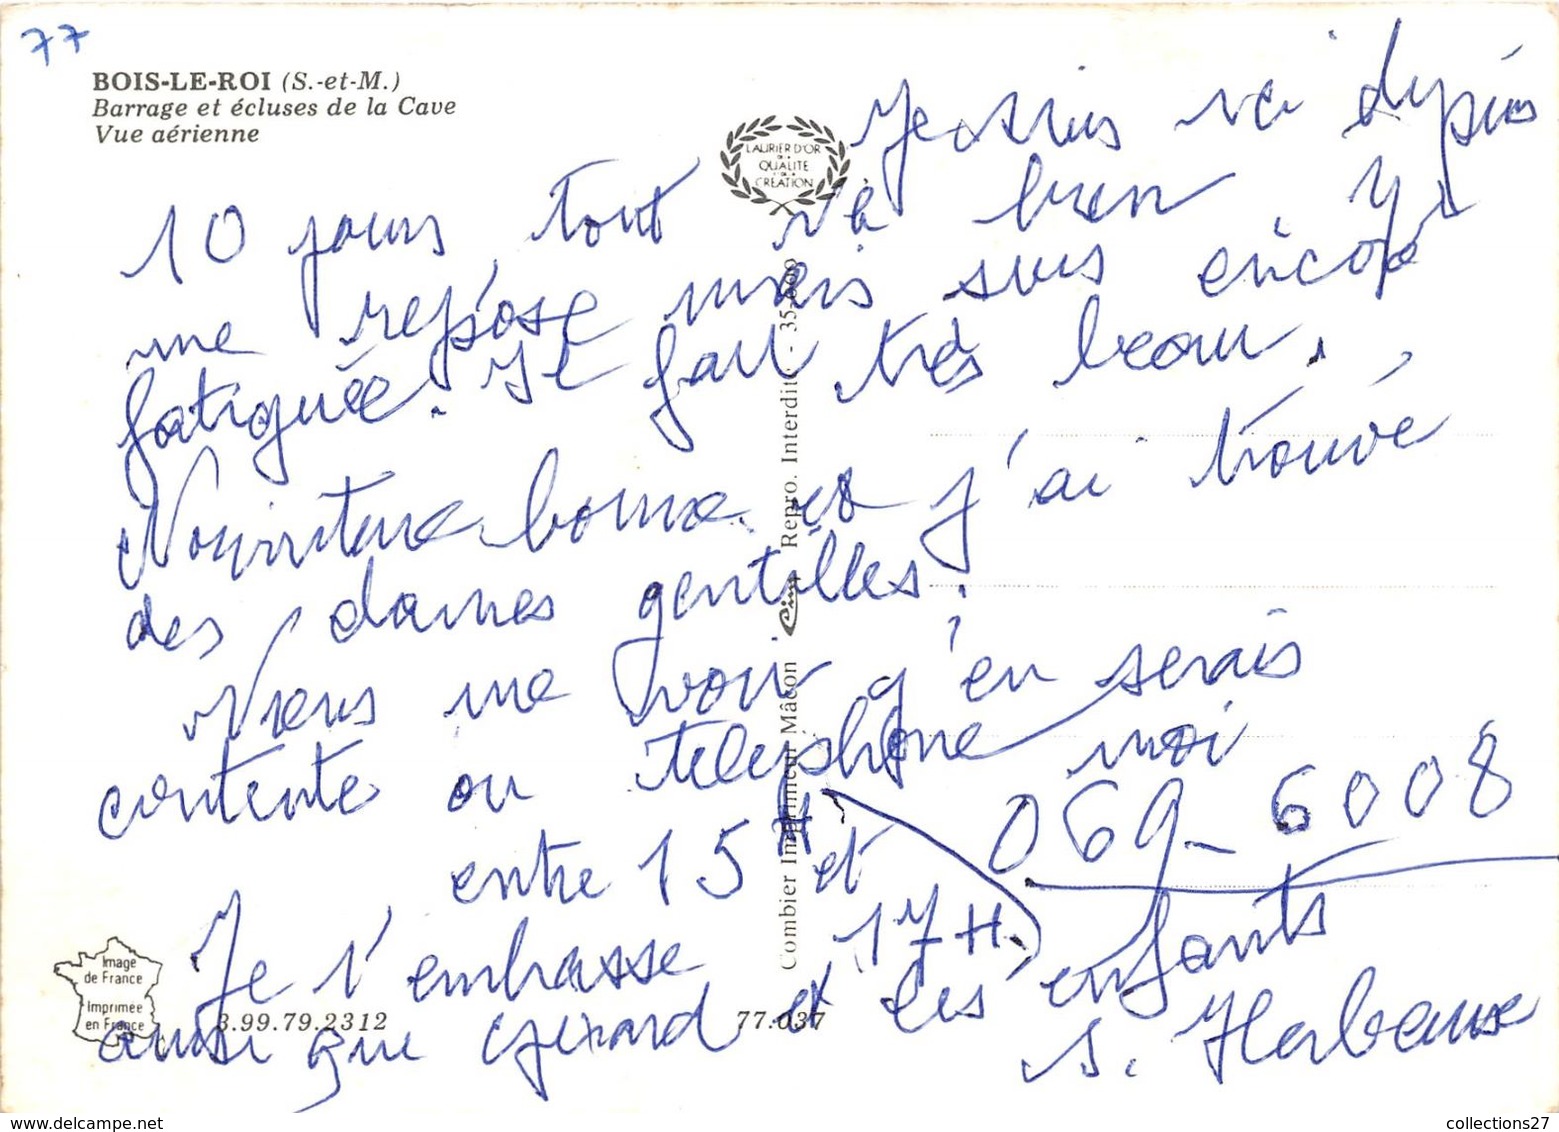 77
BOIS-LE-ROI (S.-et-M.)
Barrage et écluses de la Cave
Vue aérienne
LAURIER D'OR
DE LA
QUALITE
DE LA
CREATION
Je suis ici depuis
10 jours, tout va bien, j'y
me repose mais suis encore
fatiguée. Il fait très beau.
Nourriture bonne et j'ai trouvé
des dames gentilles.
Viens me voir j'en serais
contente ou téléphone moi
069-6008
entre 15H et
17H
Je t'embrasse
ainsi que Gérard et les enfants
S. Herbeaux
Combier Imprimeur Mâcon Cim Repro. Interdite - 35.600
Image
de France
Imprimée
en France
3.99.79.2312
77.037
collections27